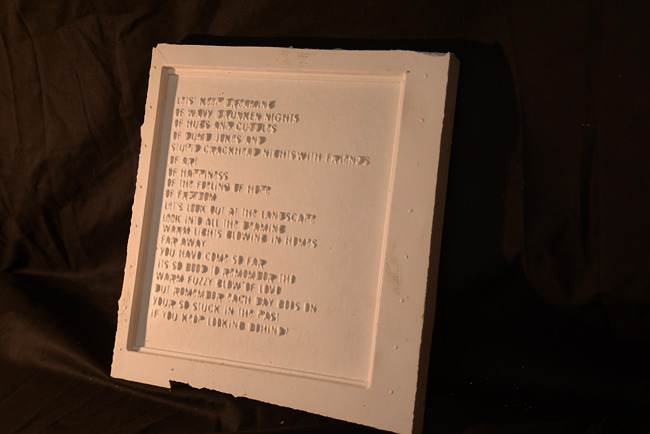 LETS KEEP DREAMING
OF WAVY DRUNKEN NIGHTS
OF HUGS AND CUDDLES
OF DUMB JOKES AND
STUPID CRACKHEAD NIGHTS WITH FRIENDS
OF ART
OF HAPPINESS
OF THE FEELING OF HOPE
OF FREEDOM
LETS LOOK OUT AT THE LANDSCAPE
LOOK INTO ALL THE
WARM LIGHTS GLOWING IN HOMES
FAR AWAY
YOU HAVE COME SO FAR
ITS SO GOOD TO REMEMBER THE
WARM FUZZY GLOW OF LOVE
BUT REMEMBER EACH DAY GOES ON
YOUR SO STUCK IN THE PAST
IF YOU KEEP LOOKING BEHIND